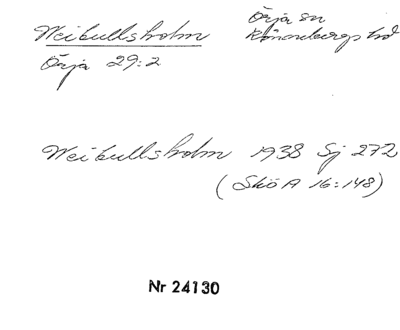 Weibullsholm Örja sn
Rönnebergs hd
Örja 29:2
Weibullsholm 1938 Sj 272
(Skö A 16:148)
Nr 24130